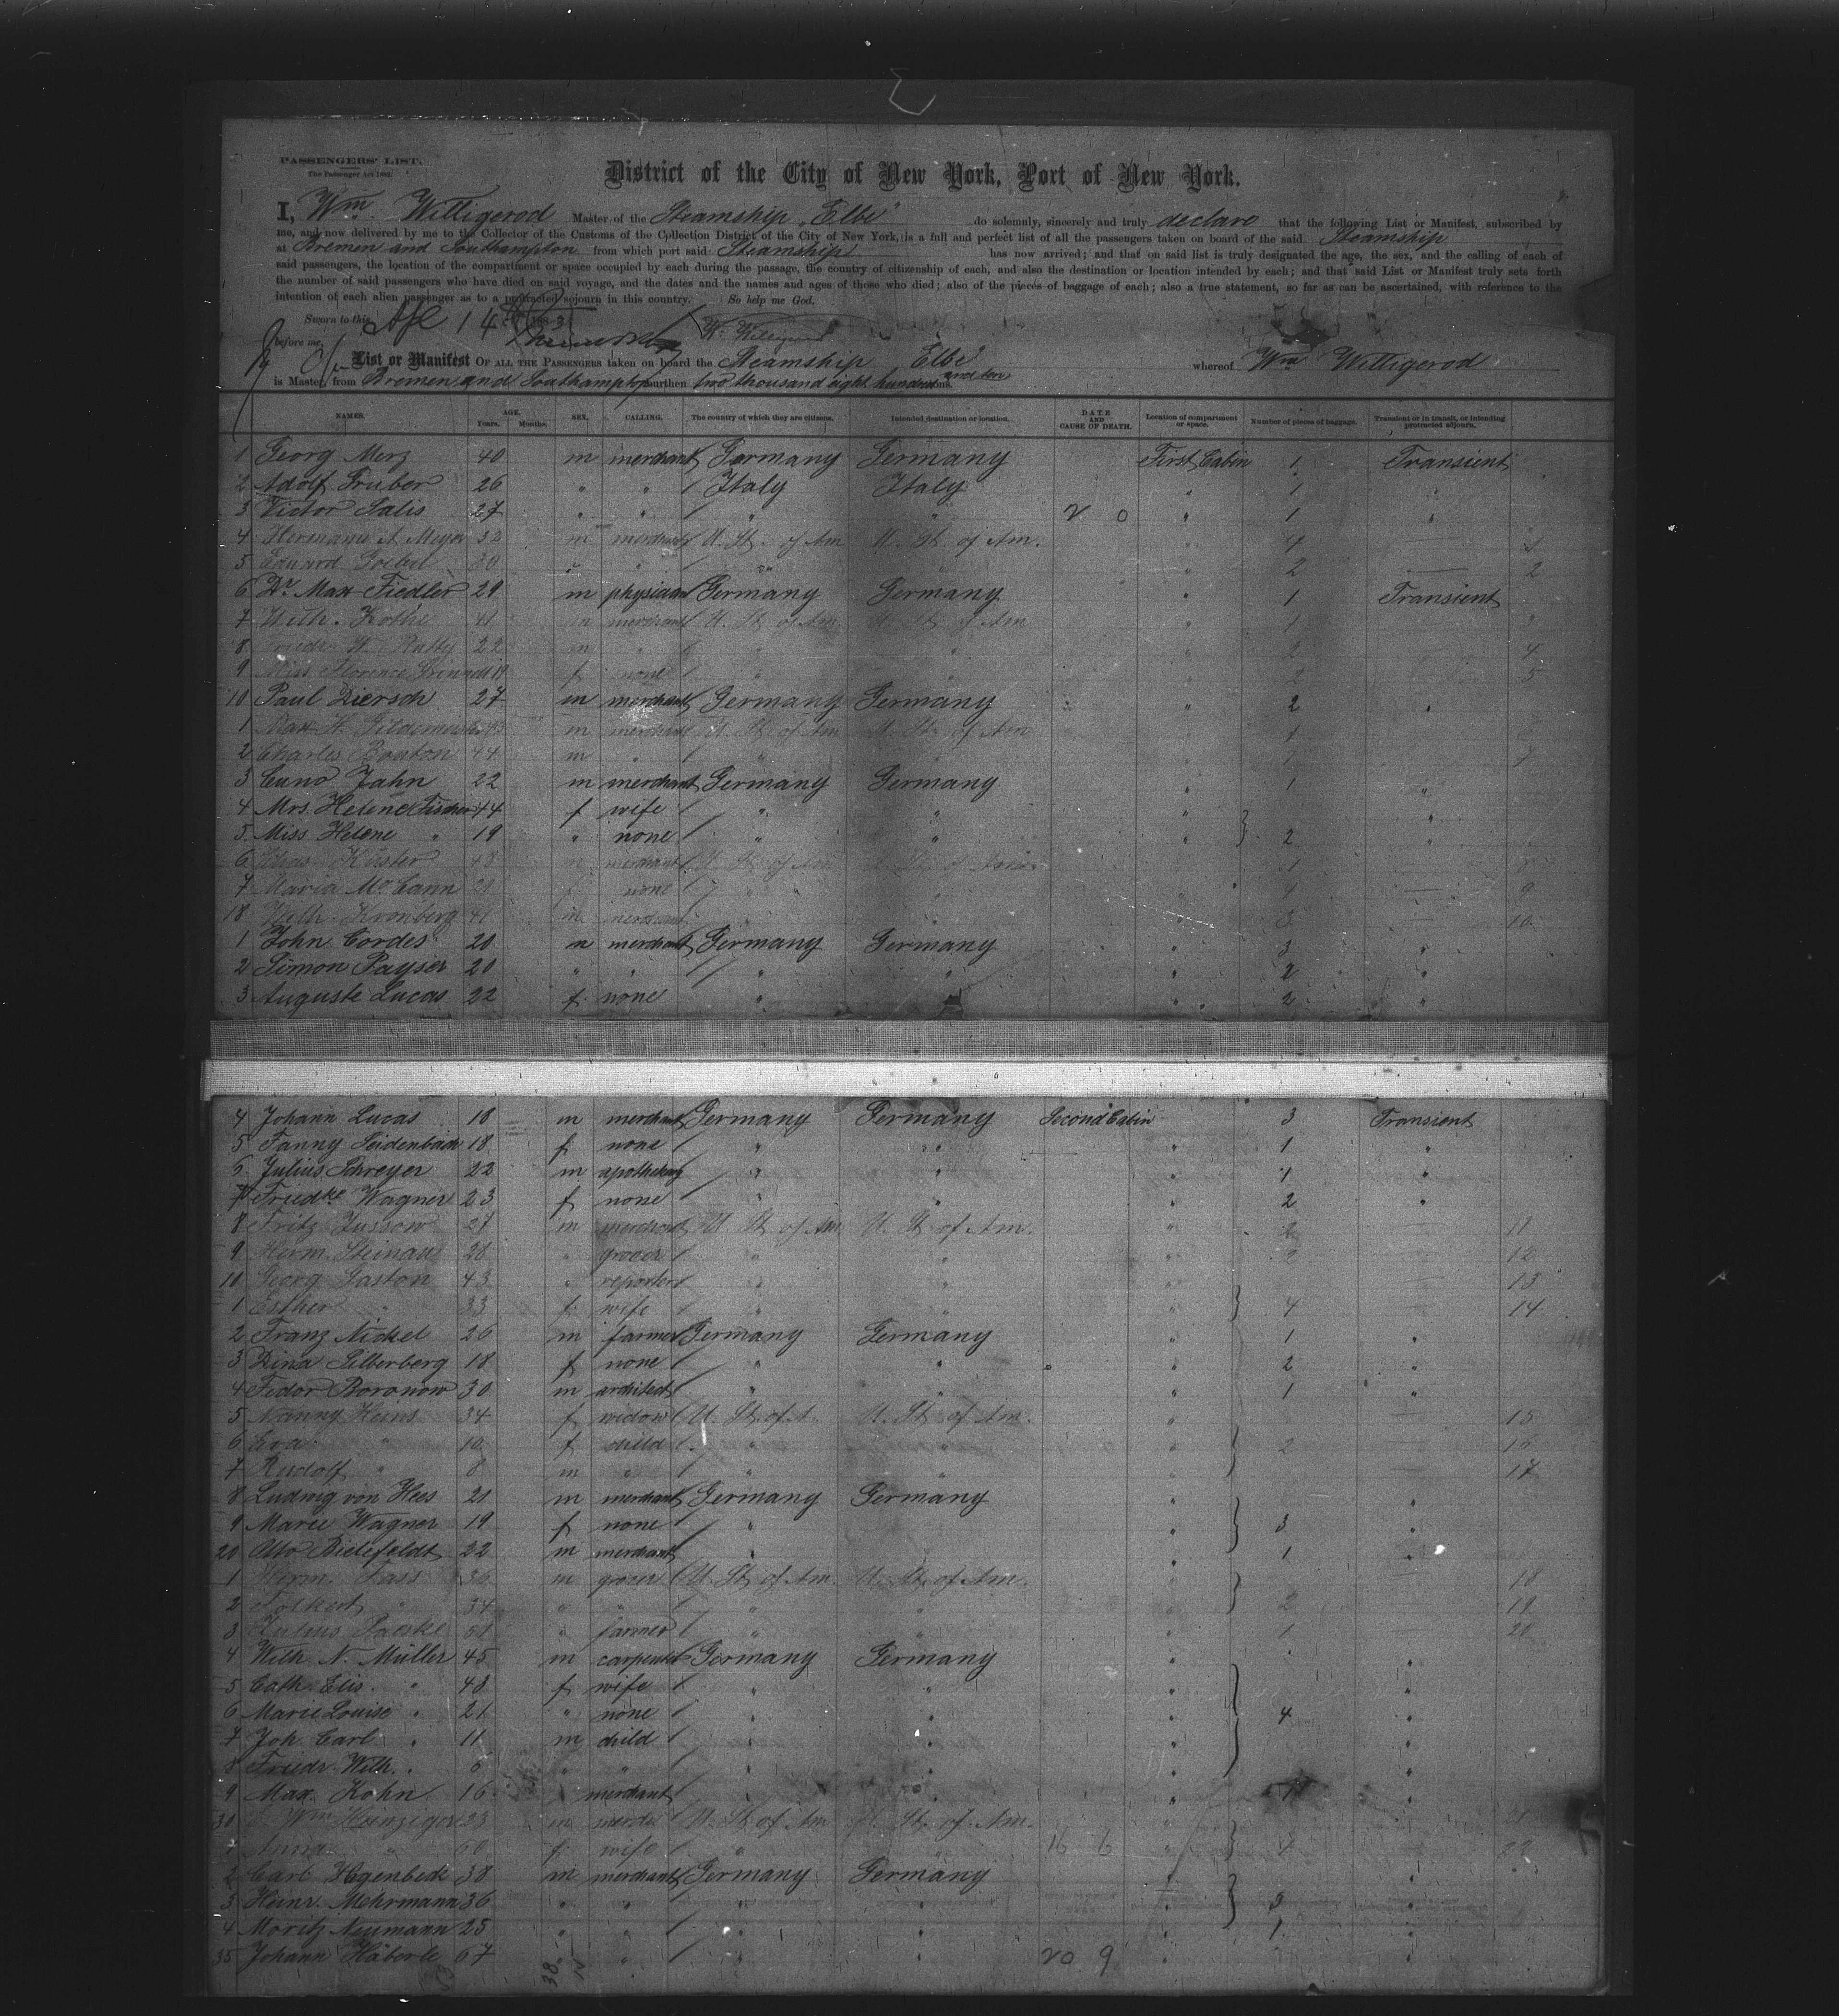 PASSENGERS' LIST.
The Passenger Act 1882.
District of the City of New York, Port of New York.
I, Wm. Willigerod Master of the Steamship "Elbe" do solemnly, sincerely and truly declare that the following List or Manifest, subscribed by
me, and now delivered by me to the Collector of the Customs of the Collection District of the City of New York, is a full and perfect list of all the passengers taken on board of the said Steamship
at Bremen and Southampton from which port said Steamship has now arrived; and that on said list is truly designated the age, the sex, and the calling of each of
said passengers, the location of the compartment or space occupied by each during the passage, the country of citizenship of each, and also the destination or location intended by each; and that said List or Manifest truly sets forth
the number of said passengers who have died on said voyage, and the dates and the names and ages of those who died; also of the pieces of baggage of each; also a true statement, so far as can be ascertained, with reference to the
intention of each alien passenger as to a protracted sojourn in this country. So help me God.
Sworn to this 14 188
before me W. Willigerod
List or Manifest OF ALL THE PASSENGERS taken on board the Steamship Elbe whereof Wm Willigerod
is Master, from Bremen and Southampton burthen two thousand eight hundred and ten tons
NAMES. AGE. Years. Months. SEX. CALLING. The country of which they are citizens. Intended destination or location. DATE AND CAUSE OF DEATH. Location of compartment or space. Number of pieces of baggage. Transient or in transit, or intending protracted sojourn.
1 Georg Merz 40 m merchant Germany Germany First Cabin 1 Transient
2 Adolf Fruber 26 " " Italy Italy " 1 "
3 Victor Salis 27 " " " " " 1 "
4 Hermann A. Meyer 32 m merchant U. St. of Am U. St. of Am. " 4
5 Eduard Goebel 30 " " " " " 2 2
6 Dr. Max Fiedler 29 m physician Germany Germany " 1 Transient
7 Wilh. Kothe 41 m merchant U. St. of Am. U. St. of Am " 1
8 22 m " " " " 2 4
9 Miss Florence 19 f none " " " 2 5
10 Paul Diersch 27 m merchant Germany Germany " 2 "
1 m merchant U. St. of Am U. St. of Am 1
2 Charles Bouton 44 m " " " 1 7
3 Cuno Jahn 22 m merchant Germany Germany " 1 "
4 Mrs. Helene Fischer 44 f wife " " " "
5 Miss Helene " 19 " none " " " 2 "
6 Küster 48 m merchant U. St. of Am U. St. of Am. 1 8
7 Maria McCann f none " " " 1 9
18 Wilh. Kronberg 41 m merchant " " 3 10
1 John Cordes 20 m merchant Germany Germany " 3 "
2 Simon Payser 20 " " " " " 2 "
3 Auguste Lucas 22 f none " " " 2 "
4 Johann Lucas 18 m merchant Germany Germany Second Cabin 3 Transient
5 Fanny Seidenbach 18 f none " " " 1 "
6 Julius Schreyer 22 m apothecary " " " 1 "
7 Friedke Wagner 23 f none " " " 2 "
8 Fritz Jussow 27 m merchant U. St. of Am U. St. of Am. " 2 11
9 Herm. Steinau 28 " grocer " " " 2 12
10 Georg Gaston 43 " reporter " " " 13
1 Esther " 33 f wife " " " 4 14
2 Franz Nickel 26 m farmer Germany Germany " 1 "
3 Dina Silberberg 18 f none " " " 2 "
4 Fedor Boronow 30 m architect " " " 1 "
5 Nanny Heins 34 f widow U. St. of A. U. St. of Am. " 15
6 Eva " 10 f child " " " 2 16
7 Rudolf " 8 m " " " " 17
8 Ludwig von Hees 21 m merchant Germany Germany " "
9 Marie Wagner 19 f none " " " 3 "
20 Otto Bielefeldt 22 m merchant " " " 1 "
1 Herm. Fass 36 m grocer U. St. of Am. U. St. of Am. " 18
2 " 34 " " " " " 2 19
3 Julius " farmer " " " 1 20
4 Wilh. N. Müller 45 m carpenter Germany Germany " "
5 Cath. Elis. " 48 f wife " " " "
6 Marie Louise " 21 " none " " " 4 "
7 Joh. Carl " 11 m child " " " "
8 Friedr. Wilh. " 6 " " " " " "
9 Max Kohn 16 merchant " " " 1 "
30 Wm U. St. of Am U. St. of Am.
1 Anna " f wife " " 16 6 " 22
2 Carl Hagenbeck 38 m merchant Germany Germany " "
3 Heinr. Mehrmann 36 " " " " " 3 "
4 Moritz Neumann 25 " " " " " 1 "
35 Johann Häberle 67 " " " 20 9 " "
38